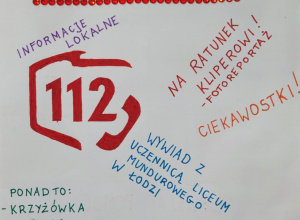 INFORMACJE
LOKALNE
112
NA RATUNEK
KLIPEROWI!
-FOTOREPORTAŻ
CIEKAWOSTKI!
WYWIAD Z
UCZENNICĄ LICEUM
MUNDUROWEGO
W ŁODZI
PONADTO:
- KRZYŻÓWKA